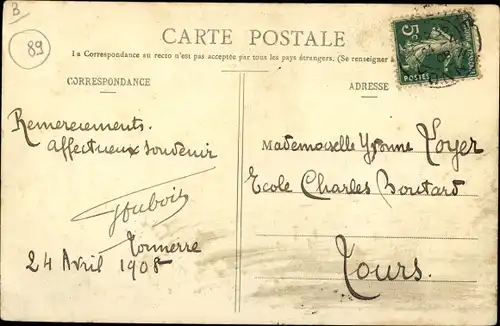 B
89
CARTE POSTALE
La Correspondance au recto n'est pas acceptée par tous les pays étrangers. (Se renseigner à
CORRESPONDANCE
ADRESSE
5c
POSTES
Remerciements.
Affectueux souvenir
Tonnerre
24 Avril 1908
Mademoiselle Yvonne Foyer
Ecole Charles Boutard
Tours.